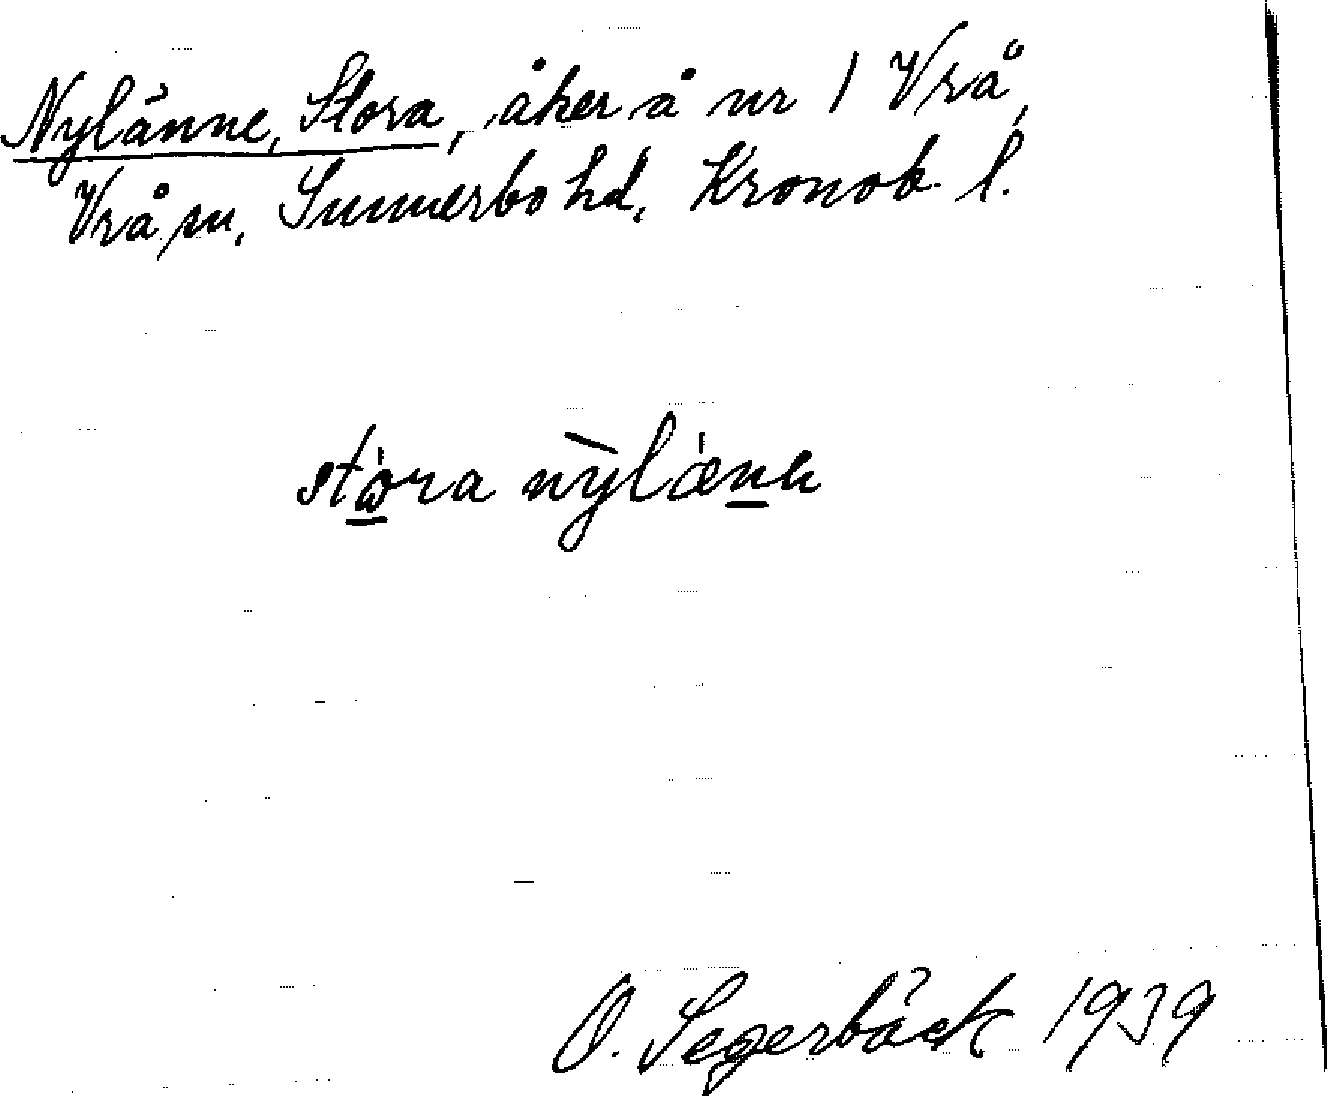 Nylänne, Stora, åker å nr 1 Vrå,
Vrå sn, Sunnerbo hd, Kronob. l.
stωra nỳlænɩ
O. Segerbäck 1939